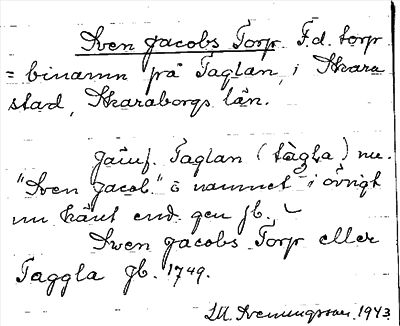 Sven Jacobs Torp. F.d. torp
= binamn på Taglan, i Skara
stad, Skaraborgs län.
Jämf. Taglan (tàgla) nu.
"Sven Jacob" ō namnet i övrigt
nu känt end. gen jb.
Sven Jacobs Torp eller
Taggla jb. 1749.
Svenungsson 1943